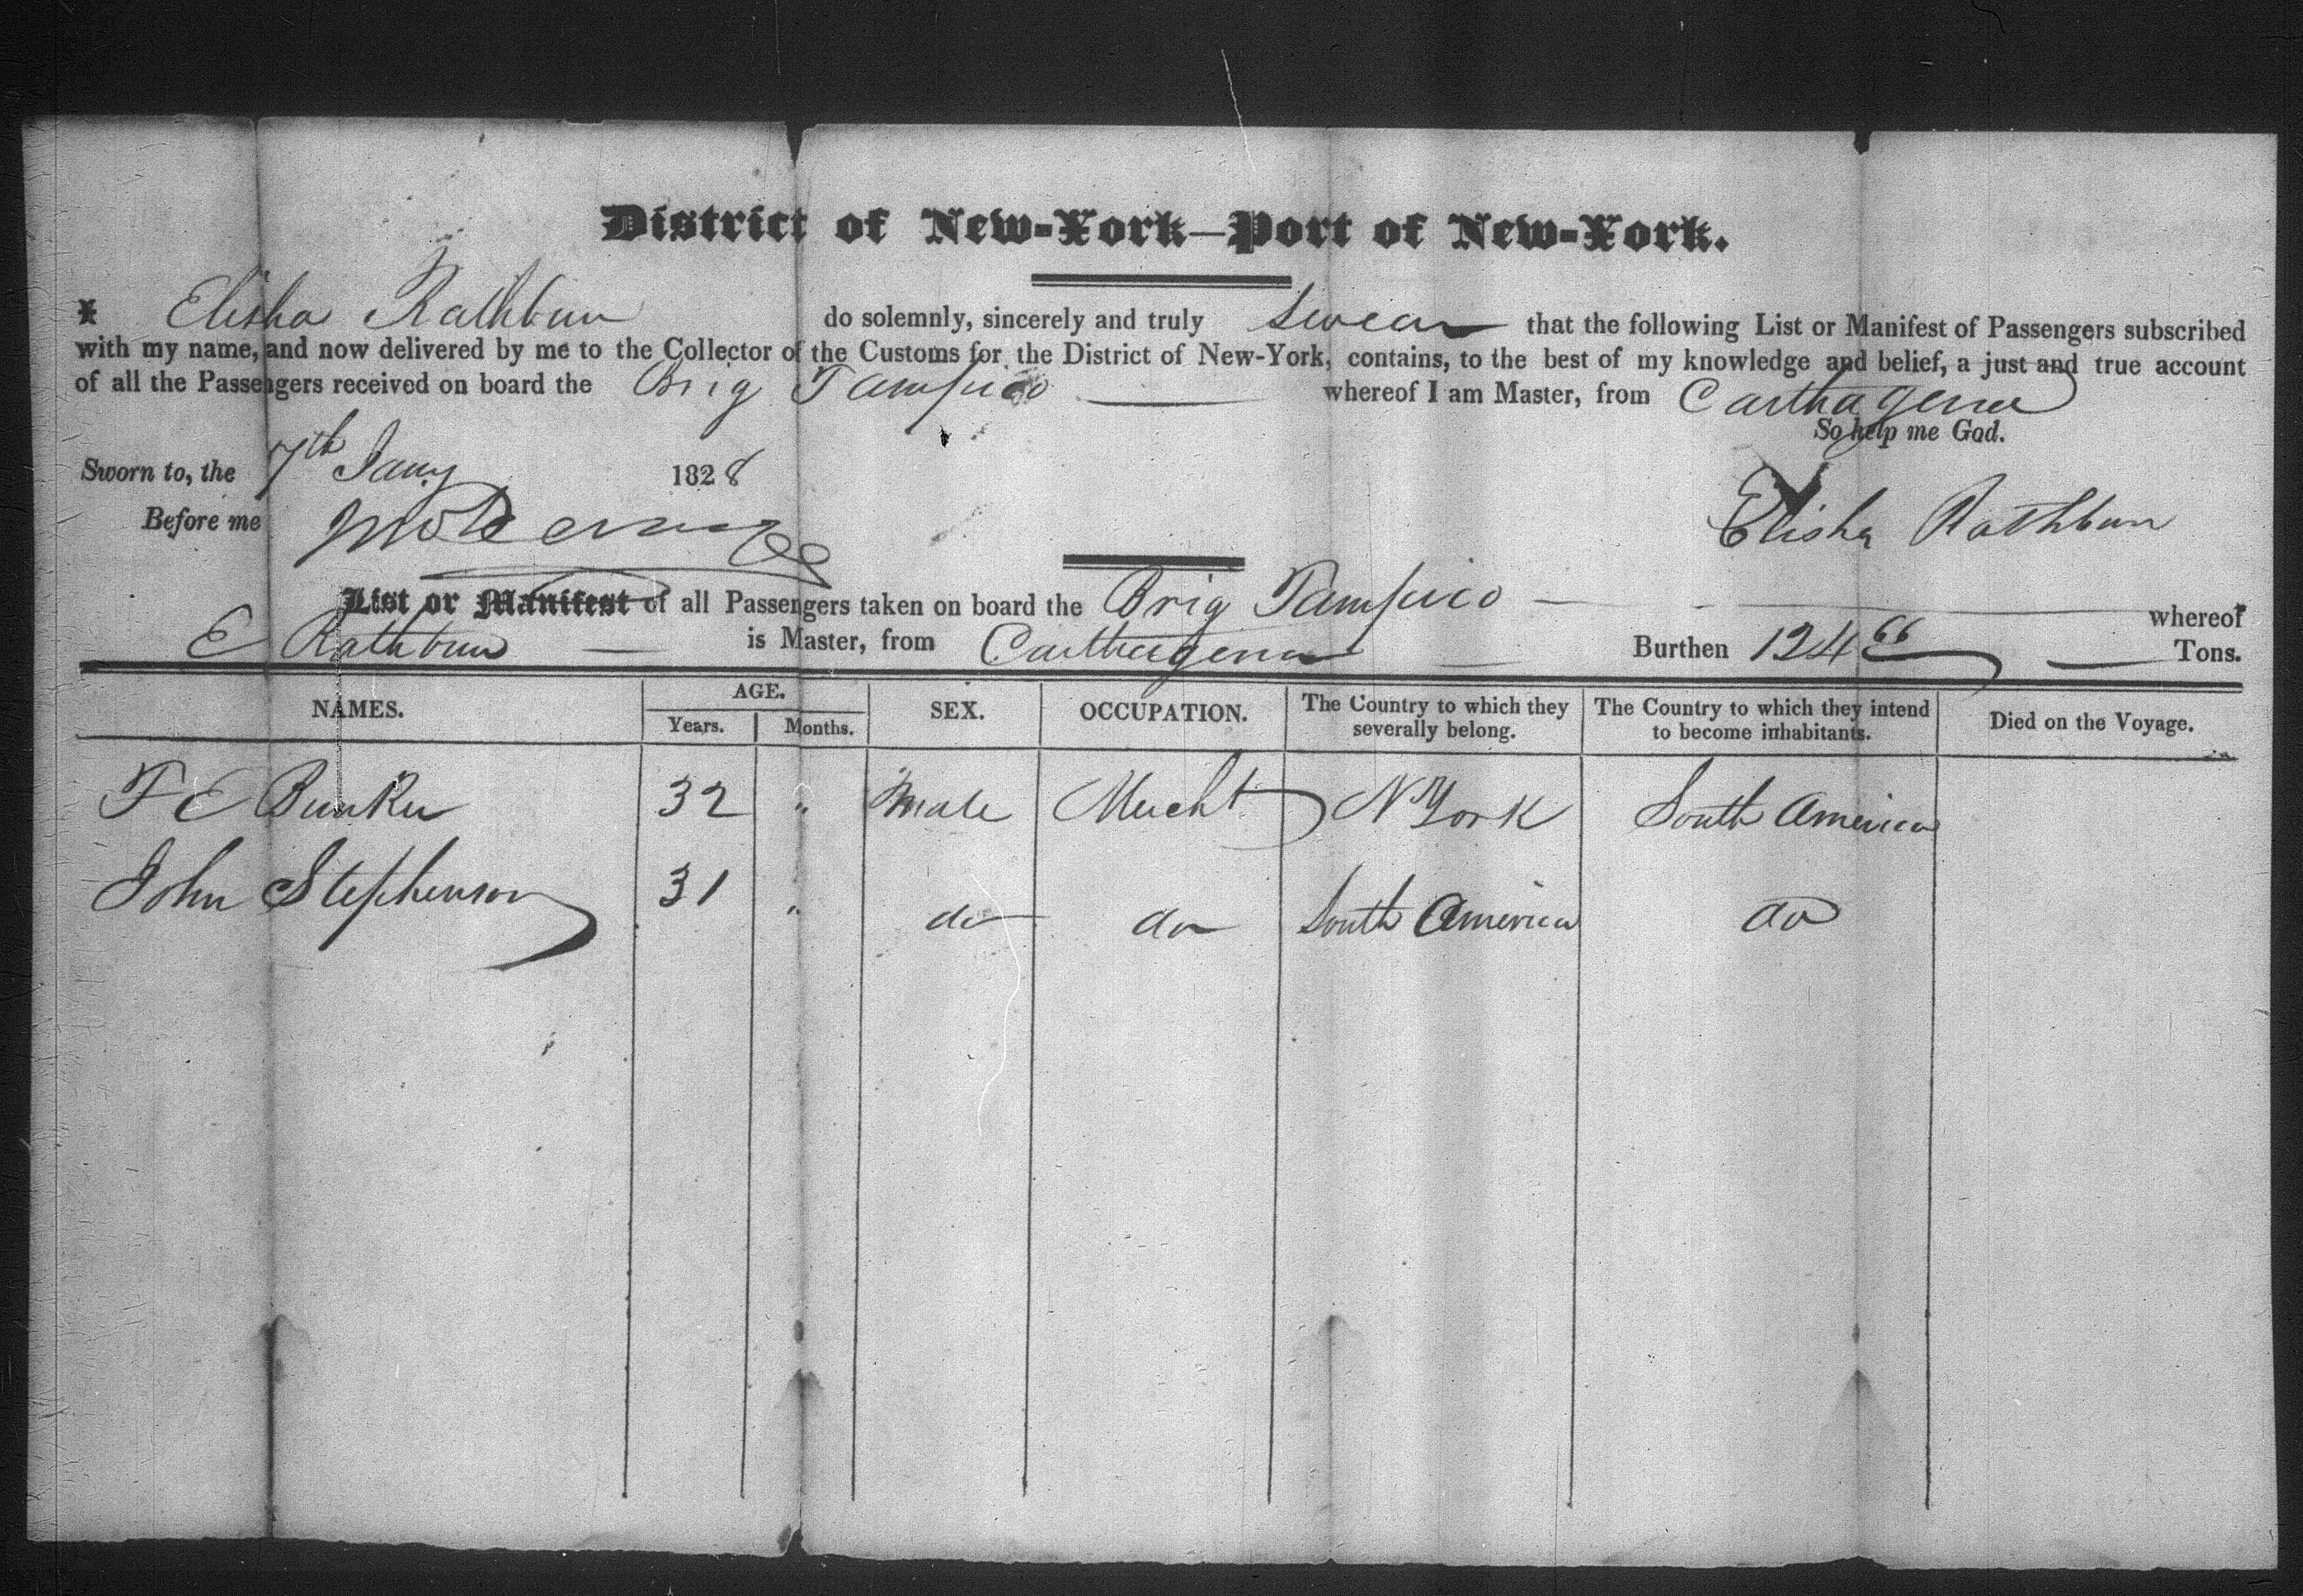 District of New-York—Port of New-York.
I Elisha Rathbun do solemnly, sincerely and truly swear that the following List or Manifest of Passengers subscribed
with my name, and now delivered by me to the Collector of the Customs for the District of New-York, contains, to the best of my knowledge and belief, a just and true account
of all the Passengers received on board the Brig Tampico whereof I am Master, from Carthagena
So help me God.
Sworn to, the 7th Jany 1828
Before me
Elisha Rathbun
List or Manifest of all Passengers taken on board the Brig Tampico whereof
E Rathbun is Master, from Carthagena Burthen 124 66 Tons.
NAMES. AGE. Years. Months. SEX. OCCUPATION. The Country to which they severally belong. The Country to which they intend to become inhabitants. Died on the Voyage.
F E Bunker 32 " Male Mercht N York South America
John Stephenson 31 " do do South America do